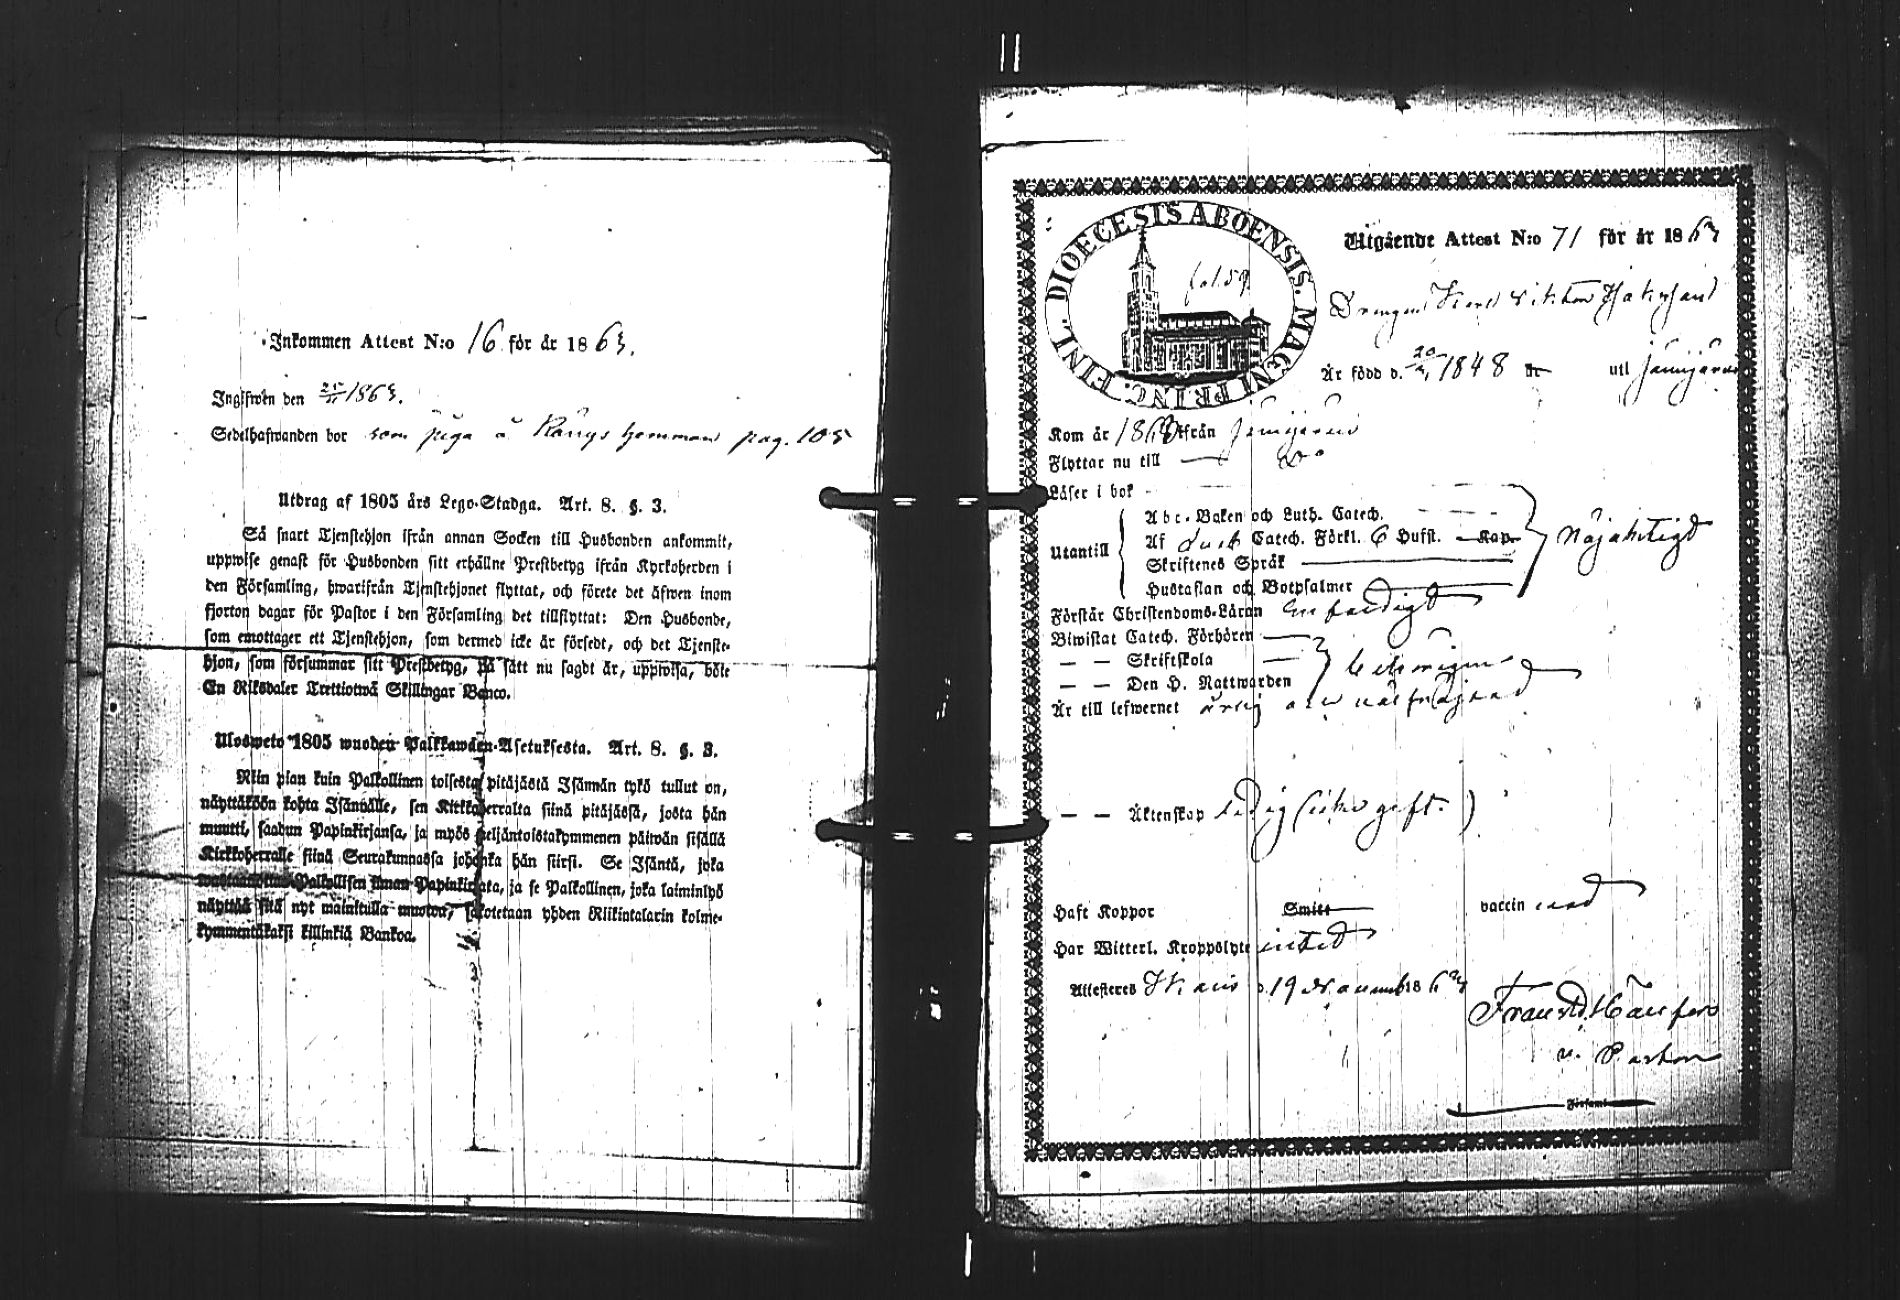 Inkommen Attest N:o 16 för år 1863.
Ingifwen den 25/11 1863.
Sedelhafwanden bor som piga å Rångs hemman pag. 105
Utdrag af 1805 års Lego-Stadga. Art. 8. §. 3.
Så snart Tjenstehjon ifrån annan Socken till Husbonden ankommit,
uppwise genast för Husbonden sitt erhållne Prestbetyg ifrån Kyrkoherden i
den Församling, hwarifrån Tjenstehjonet flyttat, och förete det äfwen inom
fjorton dagar för Pastor i den Församling det tillflyttat: Den Husbonde,
som emottager ett Tjenstehjon, som dermed icke är försedt, och det Tjenste-
hjon, som försummar sitt Prestbetyg, på sätt nu sagdt är, uppwisa, böte
En Riksdaler Trettiotwå Skillingar Banco.
Ulosweto 1805 wuoden Palkkawäen-Asetuksesta. Art. 8. §. 3.
Niin pian kuin Palkollinen toisesta pitäjästä Isännän tykö tullut on,
näyttäköön kohta Isännälle, sen Kirkkoherralta siinä pitäjässä, josta hän
muutti, saadun Papinkirjansa, ja myös neljäntoistakymmenen päiwän sisällä
Kirkkoherralle siinä Seurakunnassa johonka hän siirsi. Se Isäntä, joka
wastaanottaa Palkollisen ilman Papinkirjata, ja se Palkollinen, joka laiminlyö
näyttää sitä nyt mainitulla muotoa, sakotetaan yhden Riikintalarin kolme-
kymmentäkaksi killinkiä Bankoa.
FINL. DIOECESIS ABOENSIS. MAGNI PRINC.
fol. 59
Utgående Attest N:o 71 för år 1863
Drengen Karl Viktor
Är född d. 20/ 1848 uti Jämijärvi
Kom år 1863 ifrån Jämijärvi
Flyttar nu till do
Läser i bok
Abc-Boken och Luth. Catech.
Utantill
Af Luth Catech. Förkl. 6 Hufst. Kap.
Skriftenes Språk
Hustaflan och Botpsalmer
Nöjaktigt
Förstår Christendoms-Läran
Biwistat Catech. Förhören
— — Skriftskola
— — Den H. Nattwarden
behörigen
Är till lefwernet ärlig och
— — Äktenskap ledig (icke gift)
Haft Koppor Smitt vaccinerad
Har Witterl. Kroppslyte intet
Attesteras d. 19 November 1863
v. Pastor
Församl